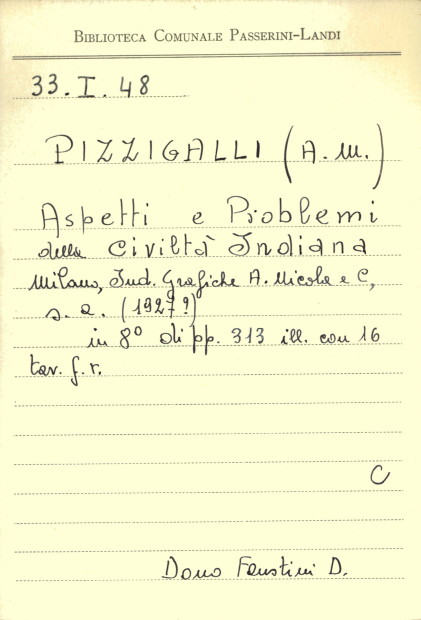 BIBLIOTECA COMUNALE PASSERINI-LANDI
33.I.48
PIZZIGALLI (A.M.)
Aspetti e Problemi
della Civiltà Indiana
Milano, Ind. Grafiche A. Nicola e C,
s. a. (1927?)
in 8° di pp. 313 ill. con 16
tav. f. r.
C
Dono Faustini D.